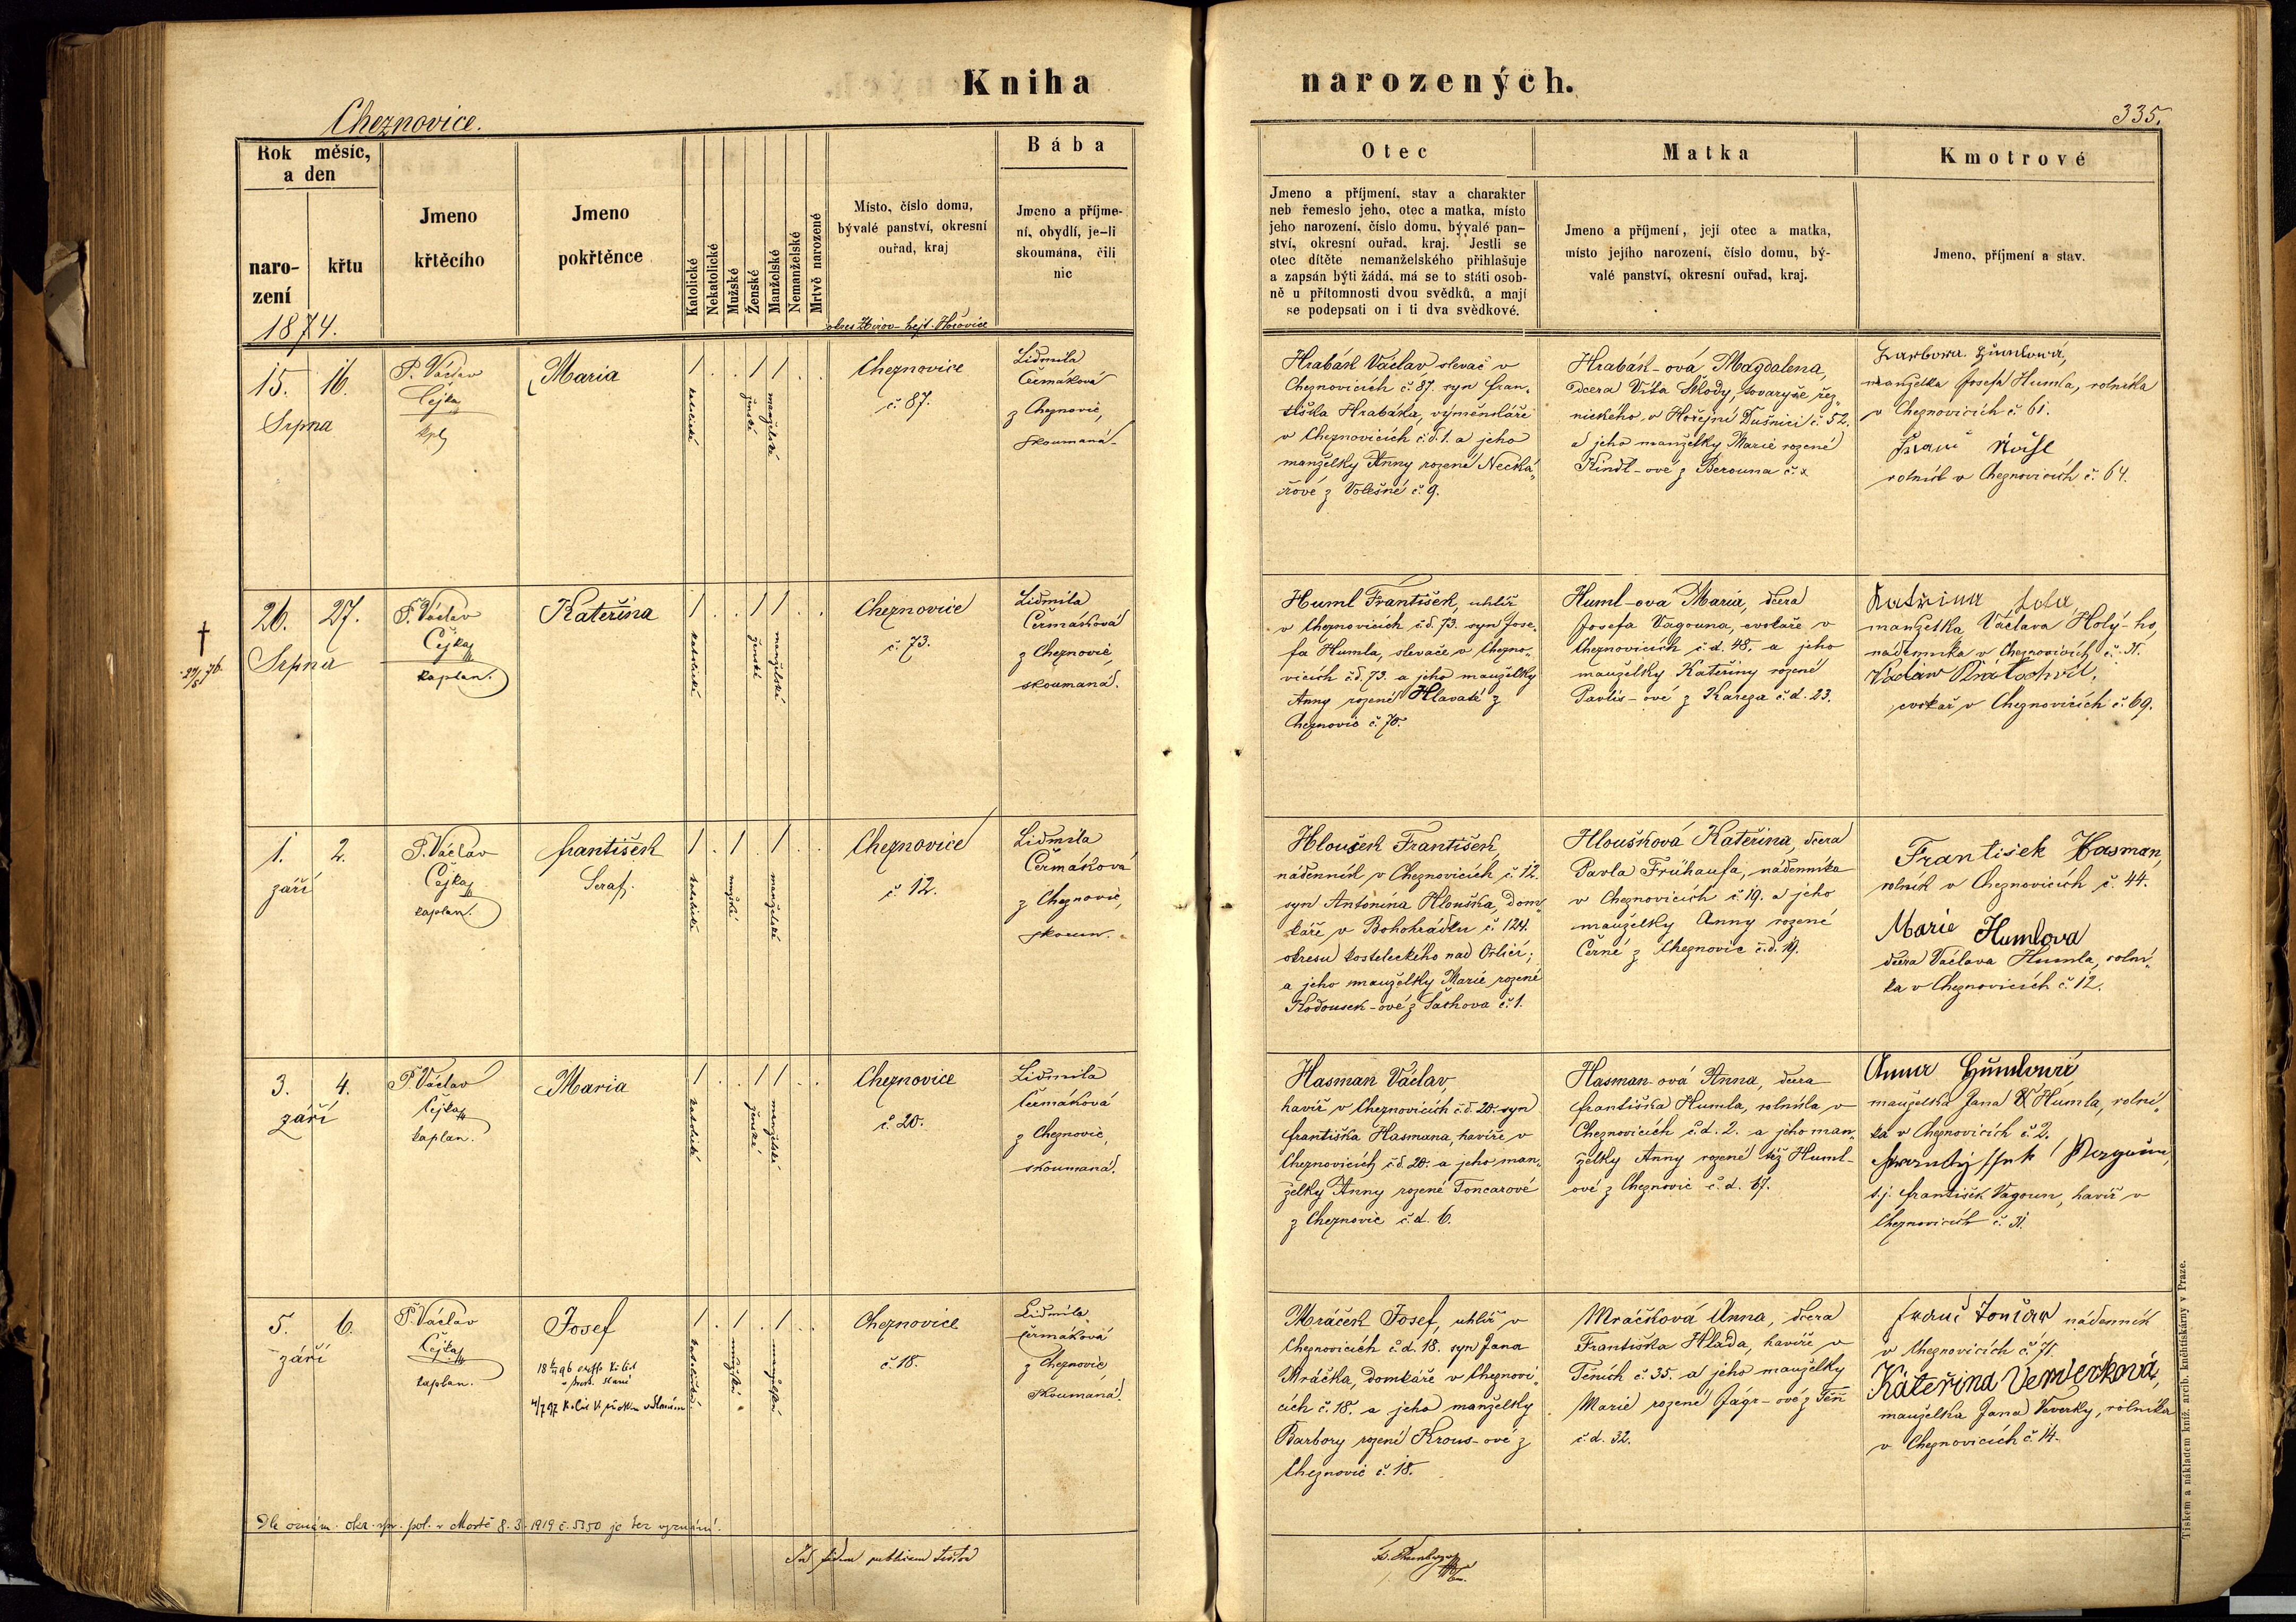 Kniha narozených.
Cheznovice.
335.
Rok měsíc, a den
narození
křtu
Jmeno křtěcího
Jmeno pokřtěnce
Katolické
Nekatolické
Mužské
Ženské
Manželské
Nemanželské
Mrtvě narozené
Místo, číslo domu,
bývalé panství, okresní
ouřad, kraj
Bába
Jmeno a příjme-
ní, obydlí, je-li
skoumána, čili
nic
Otec
Jmeno a příjmení, stav a charakter
neb řemeslo jeho, otec a matka, místo
jeho narození, číslo domu, bývalé pan-
ství, okresní ouřad, kraj. Jestli se
otec dítěte nemanželského přihlašuje
a zapsán býti žádá, má se to státi osob-
ně u přítomnosti dvou svědků, a mají
se podepsati on i ti dva svědkové.
Matka
Jmeno a příjmení, její otec a matka,
místo jejího narození, číslo domu, bý-
valé panství, okresní ouřad, kraj.
Kmotrové
Jmeno, příjmení a stav.
1874.
okres Zbirov - hejt. Hořovice
15. 16.
Srpna
P. Václav
Čejka
kpl
Maria
katolické
ženské
manželské
Cheznovice
č. 87.
Lidmila
Čermáková
z Cheznovic,
skoumaná.
Hrabák Václav slevač v
Cheznovicích č. 87. syn Fran-
tiška Hrabáka, výměnkáře
v Cheznovicích č.d. 1. a jeho
manželky Anny rozené Necká-
řové z Volešné č. 9.
Hrabák-ová Magdalena,
dcera Víta Škody, tovaryše řez-
nického v Hořejní Dušnici č. 52.
a jeho manželky Marie rozené
Kindl-ové z Berouna č. x
Barbora Humlová,
manželka Josefa Humla, rolníka
v Cheznovicích č. 61.
rolník v Cheznovicích č. 64.
26. 27.
Srpna
P. Václav
Čejka
kaplan.
Kateřina
katolické
ženské
manželské
Cheznovice
č. 73.
Lidmila
Čermáková
z Cheznovic,
skoumaná.
Huml František, uhlíř
v Cheznovicích č.d. 73. syn Jose-
fa Humla, slevače v Chezno-
vicích č.d. 73. a jeho manželky
Anny rozené Hlavaté z
Cheznovic č. 70.
Huml-ová Maria, dcera
Josefa Vagouna, cvokaře v
Cheznovicích č.d. 48. a jeho
manželky Kateřiny rozené
Pavlis-ové z Kařeza č.d. 23.
manželka Václava Holý-ho,
nádenníka v Cheznovicích č. 31.
Václaw Kratochvil,
cvokař v Cheznovicích č. 69.
1. 2.
září
P. Václav
Čejka
kaplan.
František
Seraf.
katolické
mužské
manželské
Cheznovice
č. 12.
Lidmila
Čermáková
z Cheznovic,
skoum.
Hloušek František
nádenník v Cheznovicích č. 12.
syn Antonína Hlouška, dom-
káře v Bohohrádku č. 124.
okresu kosteleckého nad Orlicí;
a jeho manželky Marie rozené
Kodousek-ové z Šachova č. 1.
Hloušková Kateřina, dcera
Pavla Frühaufa, nádenníka
v Cheznovicích č. 19. a jeho
manželky Anny rozené
Černé z Cheznovic č.d. 19.
Frantisek Hasman,
rolník v Cheznovicích č. 44.
Marie Humlova
dcera Václava Humla, rolní-
ka v Cheznovicích č. 12.
3. 4.
září
P. Václav
Čejka
kaplan.
Maria
katolické
ženské
manželské
Cheznovice
č. 20.
Lidmila
Čermáková
z Cheznovic,
skoumaná.
Hasman Václav
havíř v Cheznovicích č.d. 20. syn
Františka Hasmana, havíře v
Cheznovicích č.d. 20. a jeho man-
želky Anny rozené Toncarové
z Cheznovic č.d. 6.
Hasman-ová Anna, dcera
Františka Humla, rolníka v
Cheznovicích č.d. 2. a jeho man-
želky Anny rozené též Huml-
ové z Cheznovic č.d. 67.
Anna Humlová
manželka Jana Humla, rolní-
ka v Cheznovicích č. 2.
t.j. František Vagoun, havíř v
Cheznovicích č. 31.
5. 6.
září
P. Václav
Čejka
kaplan.
Josef
katolické
mužské
manželské
Cheznovice
č. 18.
Lidmila
Čermáková
z Cheznovic,
skoumaná.
Mráček Josef, uhlíř v
Cheznovicích č.d. 18. syn Jana
Mráčka, domkáře v Cheznovi-
cích č. 18. a jeho manželky
Barbory rozené Krous-ové z
Cheznovic č. 18.
Mráčková Anna, dcera
Františka Hlada, havíře v
Těních č. 35. a jeho manželky
Marie rozené Jágr-ové z Těň
č.d. 32.
Franc Tončar nádenník
v Cheznovicích č. 71.
Kateřina Vewerková,
manželka Jana Veverky, rolníka
v Cheznovicích č. 14.
Dle oznám. okr. spr. pol. v Mostě 8.3.1919 č. 5350 je bez vyznání.
In fidem publicam testor
Tiskem a nákladem kníž. arcib. knihtiskárny v Praze.